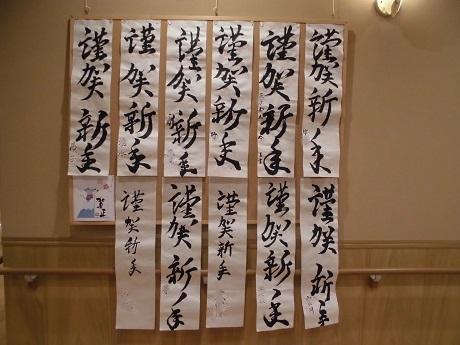 謹賀新年
謹賀新年
謹賀新年
謹賀新年
謹賀新年
謹賀新年
謹賀新年
謹賀新年
謹賀新年
謹賀新年
謹賀新年